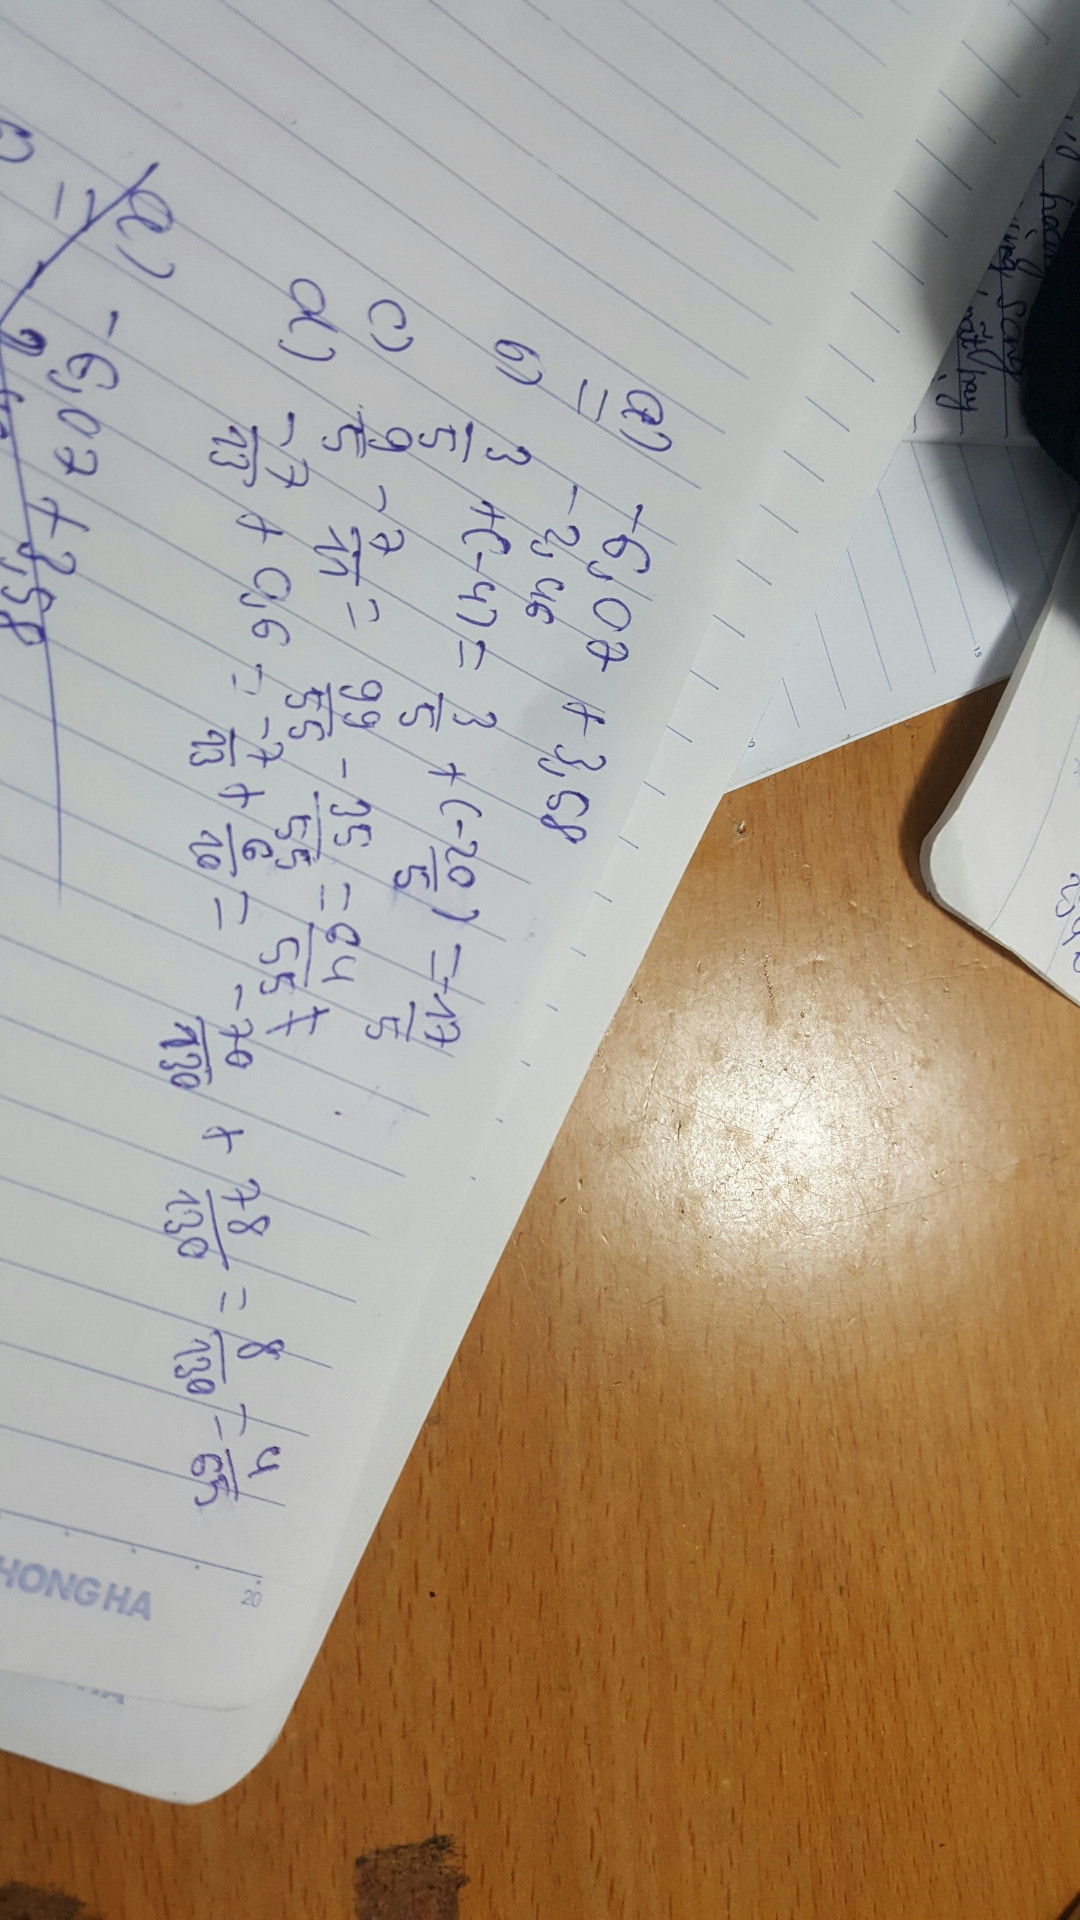 a) -6,07 + 3,58
= -2,46
b) 3/5 + (-4) = 3/5 + (-20/5) = -17/5
c) 9/5 - 7/11 = 99/55 - 35/55 = 64/55
d) -7/13 + 0,6 = -7/13 + 6/10 = -70/130 + 78/130 = 8/130 = 4/65
a) -6,07 + 3,58
=
HONG HA
20